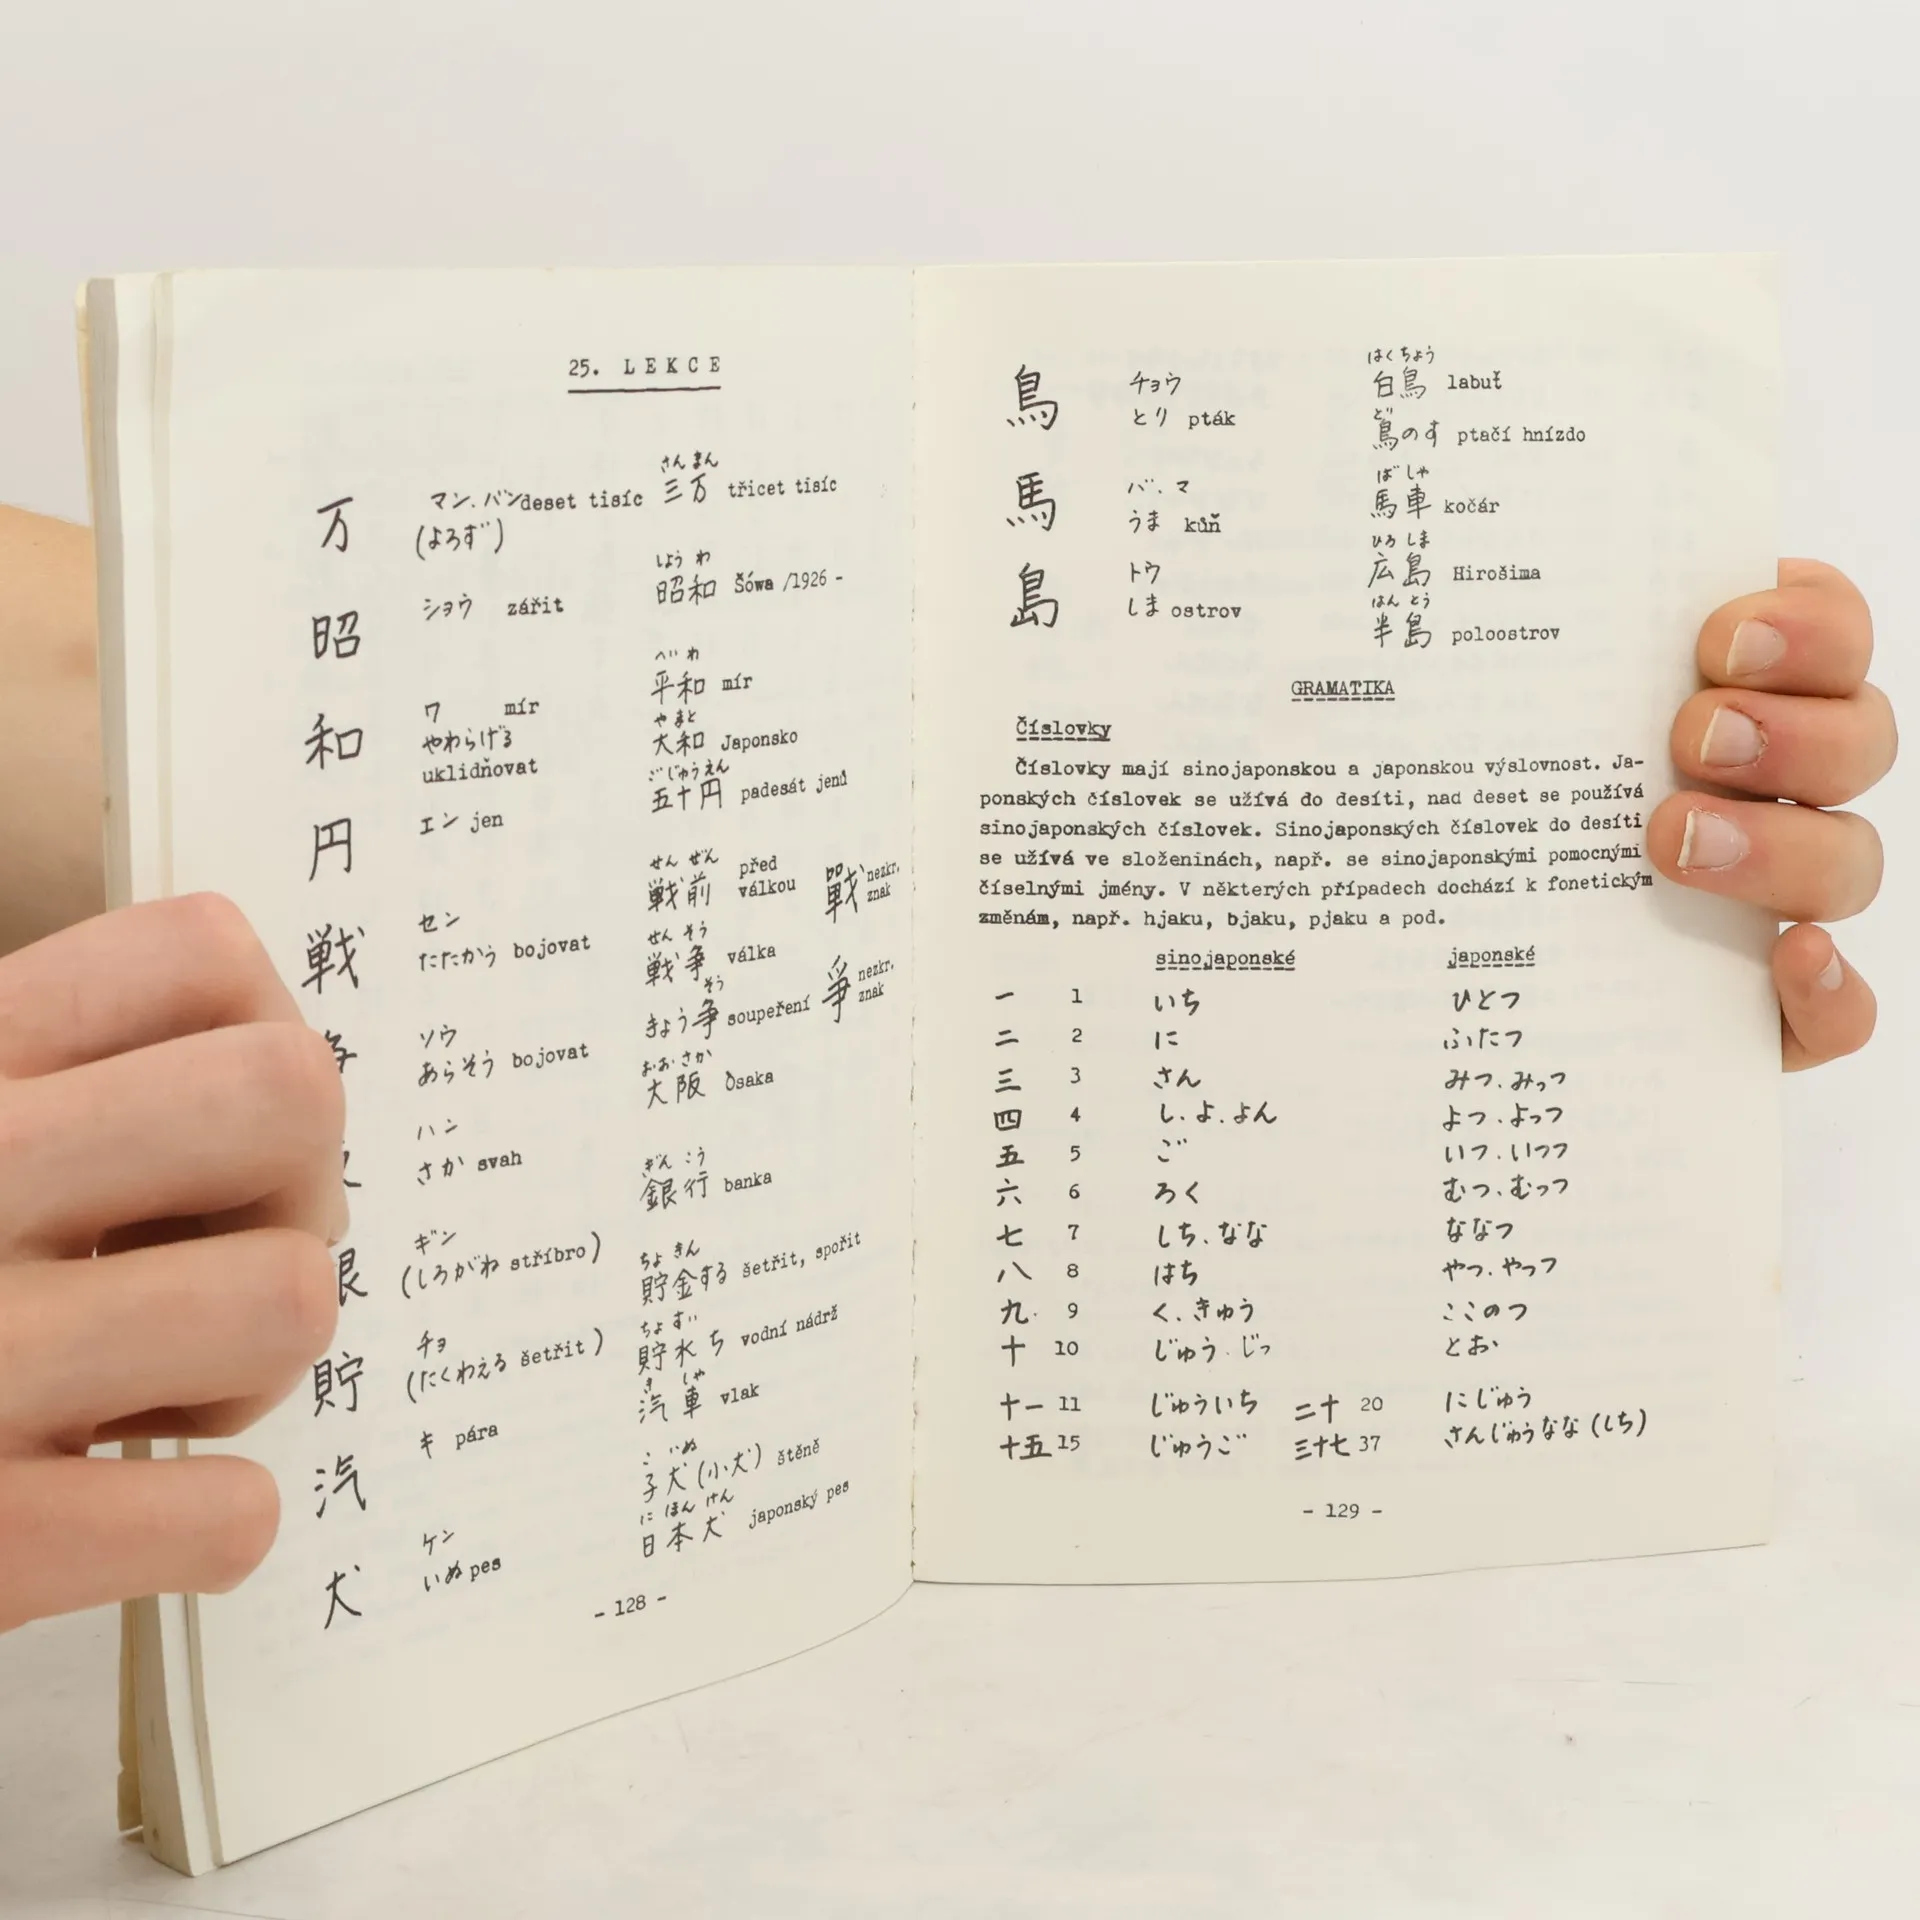 25. LEKCE
さん まん
万 マン.バン deset tisíc 三万 třicet tisíc
(よろず)
しょう わ
昭 ショウ zářit 昭和 Šówa /1926 -
へい わ
和 ワ mír 平和 mír
やわらげる
uklidňovat
やまと
大和 Japonsko
ごじゅうえん
円 エン jen 五十円 padesát jenů
せん ぜん
戦 セン 戦前 před válkou 戰 nezkr. znak
たたかう bojovat
せん そう
戦争 válka
そう
ソウ きょう争 soupeření 爭 nezkr. znak
あらそう bojovat
おおさか
ハン 大阪 Ósaka
さか svah
ぎん こう
ギン 銀行 banka
(しろがね stříbro)
ちょ きん
貯 チョ 貯金する šetřit, spořit
(たくわえる šetřit)
ちょ すい
貯水ち vodní nádrž
き しゃ
汽 キ pára 汽車 vlak
こ いぬ
犬 ケン 子犬(小犬) štěně
いぬ pes
に ほん けん
日本犬 japonský pes
- 128 -
はくちょう
鳥 チョウ 白鳥 labuť
とり pták
と
鳥のす ptačí hnízdo
ば しゃ
馬 バ.マ 馬車 kočár
うま kůň
ひろ しま
島 トウ 広島 Hirošima
しま ostrov
はん とう
半島 poloostrov
GRAMATIKA
Číslovky
Číslovky mají sinojaponskou a japonskou výslovnost. Ja-
ponských číslovek se užívá do desíti, nad deset se používá
sinojaponských číslovek. Sinojaponských číslovek do desíti
se užívá ve složeninách, např. se sinojaponskými pomocnými
číselnými jmény. V některých případech dochází k fonetickým
změnám, např. hjaku, bjaku, pjaku a pod.
sinojaponské japonské
一 1 いち ひとつ
二 2 に ふたつ
三 3 さん みつ.みっつ
四 4 し.よ.よん よつ.よっつ
五 5 ご いつ.いつつ
六 6 ろく むつ.むっつ
七 7 しち.なな ななつ
八 8 はち やつ.やっつ
九. 9 く.きゅう ここのつ
十 10 じゅう.じっ とお
十一 11 じゅういち 二十 20 にじゅう
十五 15 じゅうご 三十七 37 さんじゅうなな(しち)
- 129 -